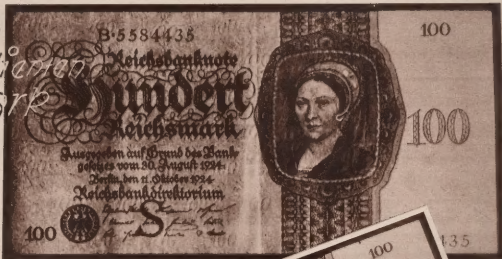 B·5584435
100
Reichsbanknote
Hundert
Reichsmark
100
Ausgegeben auf Grund des Bank-
gesetzes vom 30. August 1924
Berlin, den 11. Oktober 1924
Reichsbankdirektorium
100
S
100
435